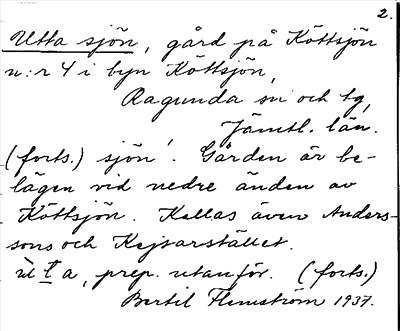 2.
Utta sjön, gård på Köttsjön
n:r 4 i byn Köttsjön,
Ragunda sn och tg,
Jämtl. län.
(forts.) sjön'. Gården är be-
lägen vid nedre änden av
Köttsjön. Kallas även Anders-
sons och Kejsarstället.
ùt̲a, prep. utanför. (forts.)
Bertil Flemström 1937.